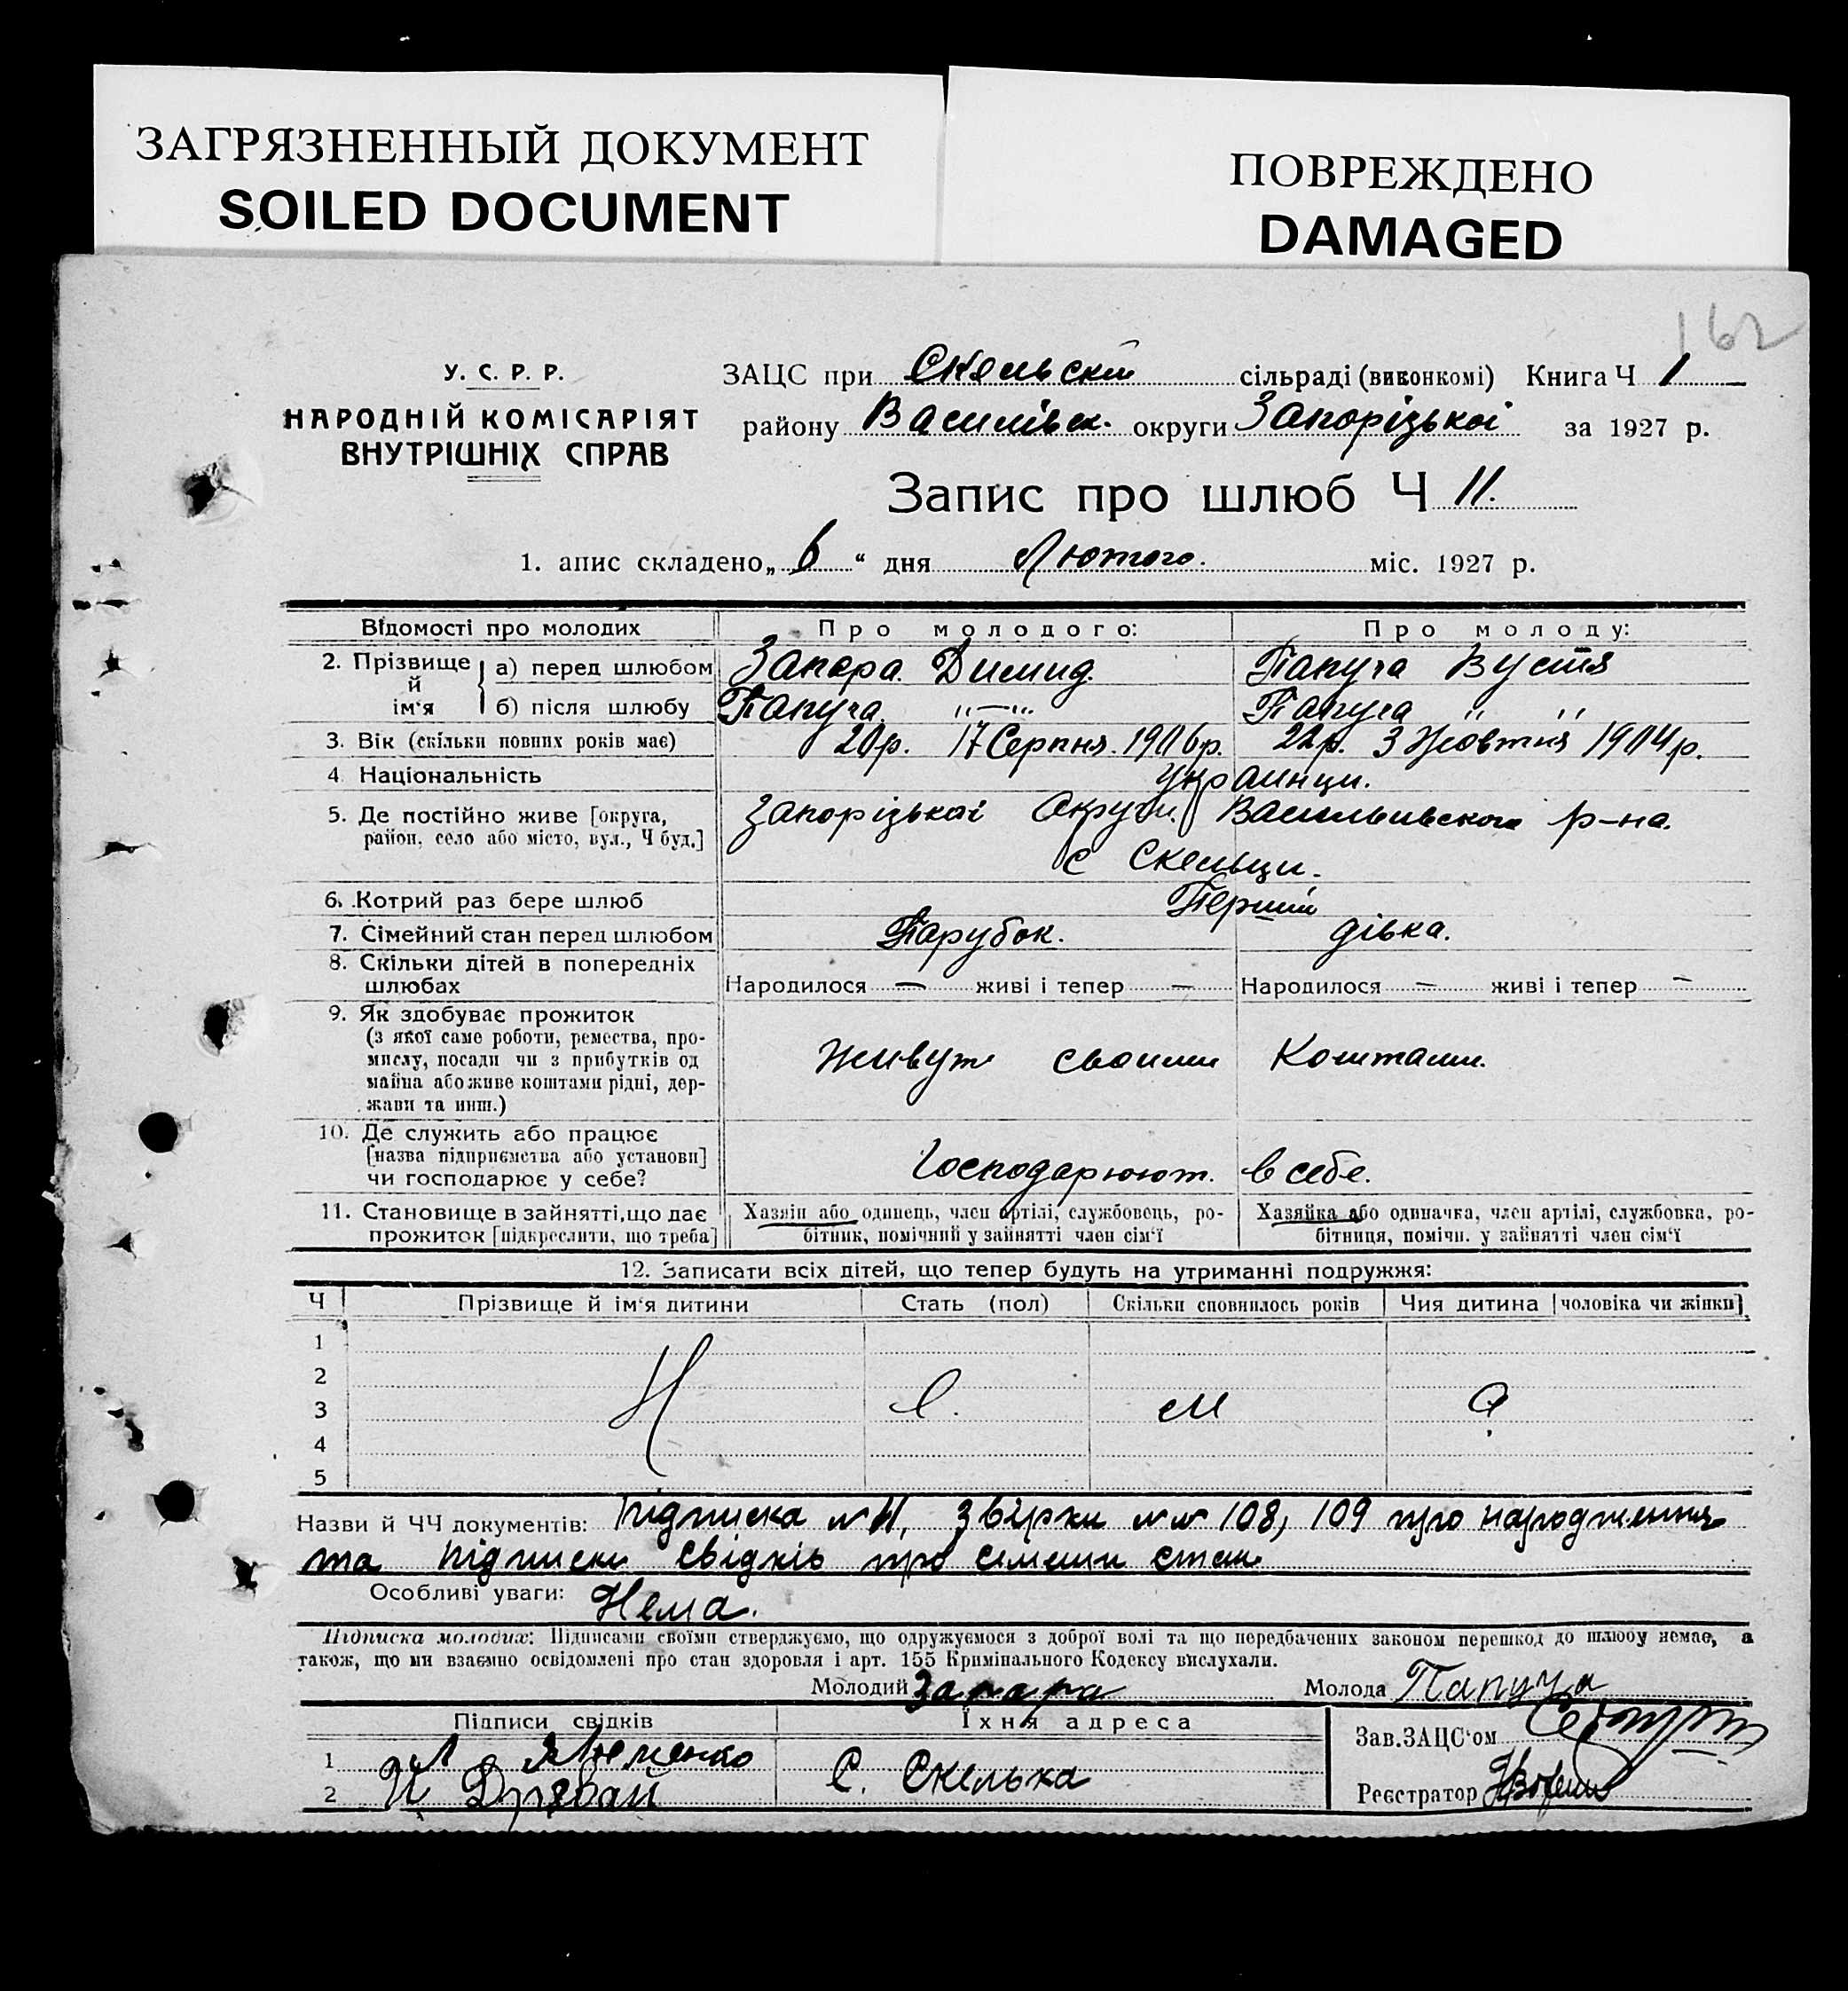 ЗАГРЯЗНЕННЫЙ ДОКУМЕНТ
SOILED DOCUMENT
ПОВРЕЖДЕНО
DAMAGED
162
У. С. Р. Р.
НАРОДНІЙ КОМІСАРІЯТ
ВНУТРІШНІХ СПРАВ
ЗАЦС при Скельскій сільраді (виконкомі) Книга Ч 1
району Василівск. округи Запорізькоі за 1927 р.
Запис про шлюб Ч 11.
1. апис складено „ 6 “ дня Лютого. міс. 1927 р.
Відомості про молодих Про молодого: Про молоду:
2. Прізвище й ім‘я а) перед шлюбом Запара. Димид. Папуча Вустя
б) після шлюбу Папуча „—„ Папуча „ „
3. Вік (скільки повних років має) 20р. 17 Серпня. 1906р. 22р. 3 Жовтня 1904р.
4 Національність Украинци.
5. Де постійно живе [округа, район, село або місто, вул., Ч буд.] Запорізькоі Округи. Васильивского р-на.
с Скельци.
6. Котрий раз бере шлюб Перший
7. Сімейний стан перед шлюбом Парубок. дівка.
8. Скільки дітей в попередніх шлюбах Народилося — живі і тепер — Народилося — живі і тепер —
9. Як здобуває прожиток
(з якої саме роботи, ремества, про-
мислу, посади чи з прибутків од
майна або живе коштами рідні, дер-
жави та инш.) Живут своими Коштами.
10. Де служить або працює
[назва підприємства або установи]
чи господарює у себе? Господарюют. в себе.
11. Становище в зайнятті, що дає Хазяїн або одинець, член артілі, службовець, ро- Хазяйка або одиначка, член артілі, службовка, ро-
прожиток [підкреслити, що треба] бітник, помічний у зайнятті член сім‘ї бітниця, помічн. у зайнятті член сім‘ї
12. Записати всіх дітей, що тепер будуть на утриманні подружжя:
Ч Прізвище й ім‘я дитини Стать (пол) Скільки сповнилось років Чия дитина [чоловіка чи жінки]
1
2
3 Н е. м а
4
5
Назви й ЧЧ документів: Підписка N 11, Звірки NN 108, 109 про народження
та підписки свідків про стан
Особливі уваги: Нема.
Підписка молодих: Підписами своїми стверджуємо, що одружуємося з доброї волі та що передбачених законом перешкод до шлюбу немає, а
також, що ми взаємно освідомлені про стан здоровля і арт. 155 Кримінального Кодексу вислухали.
Молодий Запара Молода Папуча
Підписи свідків Їхня адреса Зав. ЗАЦС‘ом
1
2 С. Скелька Реєстратор